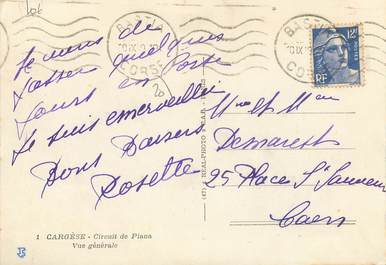 BASTIA
CORSE
BASTIA
12F
RF
Je viens de
passer quelques
jours en Corse
Je suis émerveillée
Bons Baisers
Rosette
Mme et Mr
Demarest
25 Place St Sauveur
Caen
1 CARGÈSE - Circuit de Piana
Vue générale